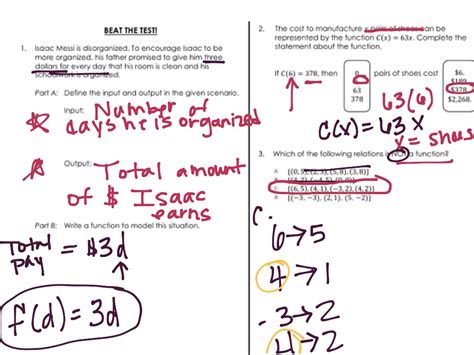 BEAT THE TEST!
1. Isaac Messi is disorganized. To encourage Isaac to be
more organized, his father promised to give him three
dollars for every day that his room is clean and his
schoolwork is organized.
Part A: Define the input and output in the given scenario.
Input: Number of
days he is organized
Output: Total amount
of $ Isaac
earns
Part B: Write a function to model this situation.
Total
pay = $3d
f(d) = 3d
2. The cost to manufacture x pairs of shoes can be
represented by the function C(x) = 63x. Complete the
statement about the function.
If C(6) = 378, then
0
6
63
378
pairs of shoes cost
$6.
$189.
$378.
$2,268.
63(6)
C(x) = 63x
x = shoes
3. Which of the following relations is NOT a function?
A {(0, 5), (2, 3), (5, 8), (3, 8)}
B
C {(6, 5), (4, 1), (−3, 2), (4, 2)}
D {(−3, −3), (2, 1), (5, −2)}
C.
6→5
4→1
-3→2
4→2